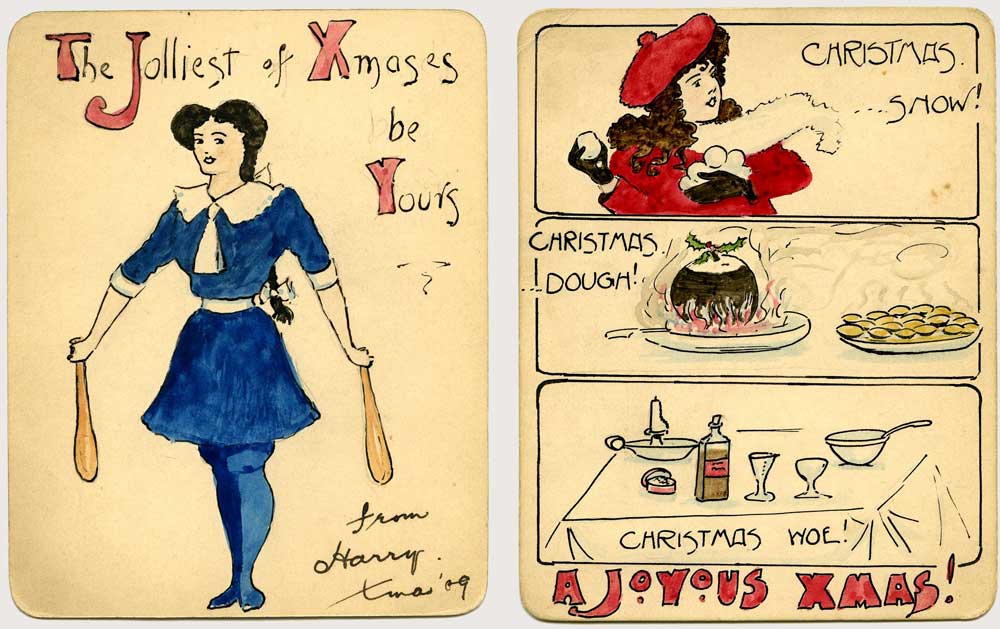 The Jolliest of Xmases
be
Yours
from
Harry.
Xmas '09
CHRISTMAS.
....SNOW!
CHRISTMAS.
...DOUGH!
CHRISTMAS WOE!
A JOYOUS XMAS!